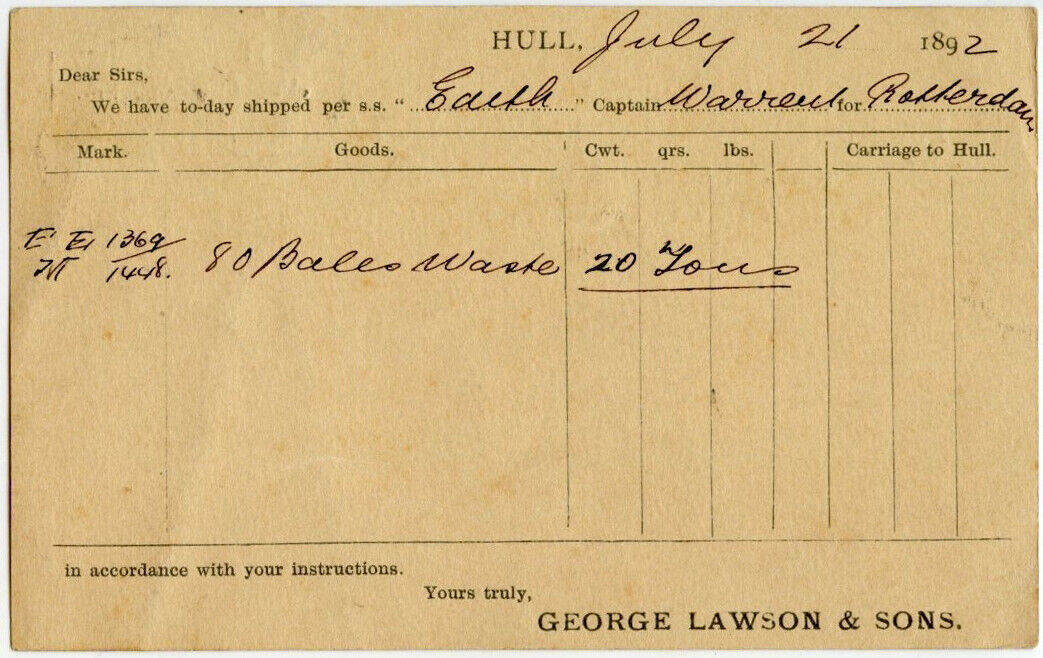 HULL, July 21 1892
Dear Sirs,
We have to-day shipped per s.s. "Edith" Captain Warrent for Rotterdam
Mark. Goods. Cwt. qrs. lbs. Carriage to Hull.
E E 1369
1448. 80 Bales Waste 20 Tons
in accordance with your instructions.
Yours truly,
GEORGE LAWSON & SONS.